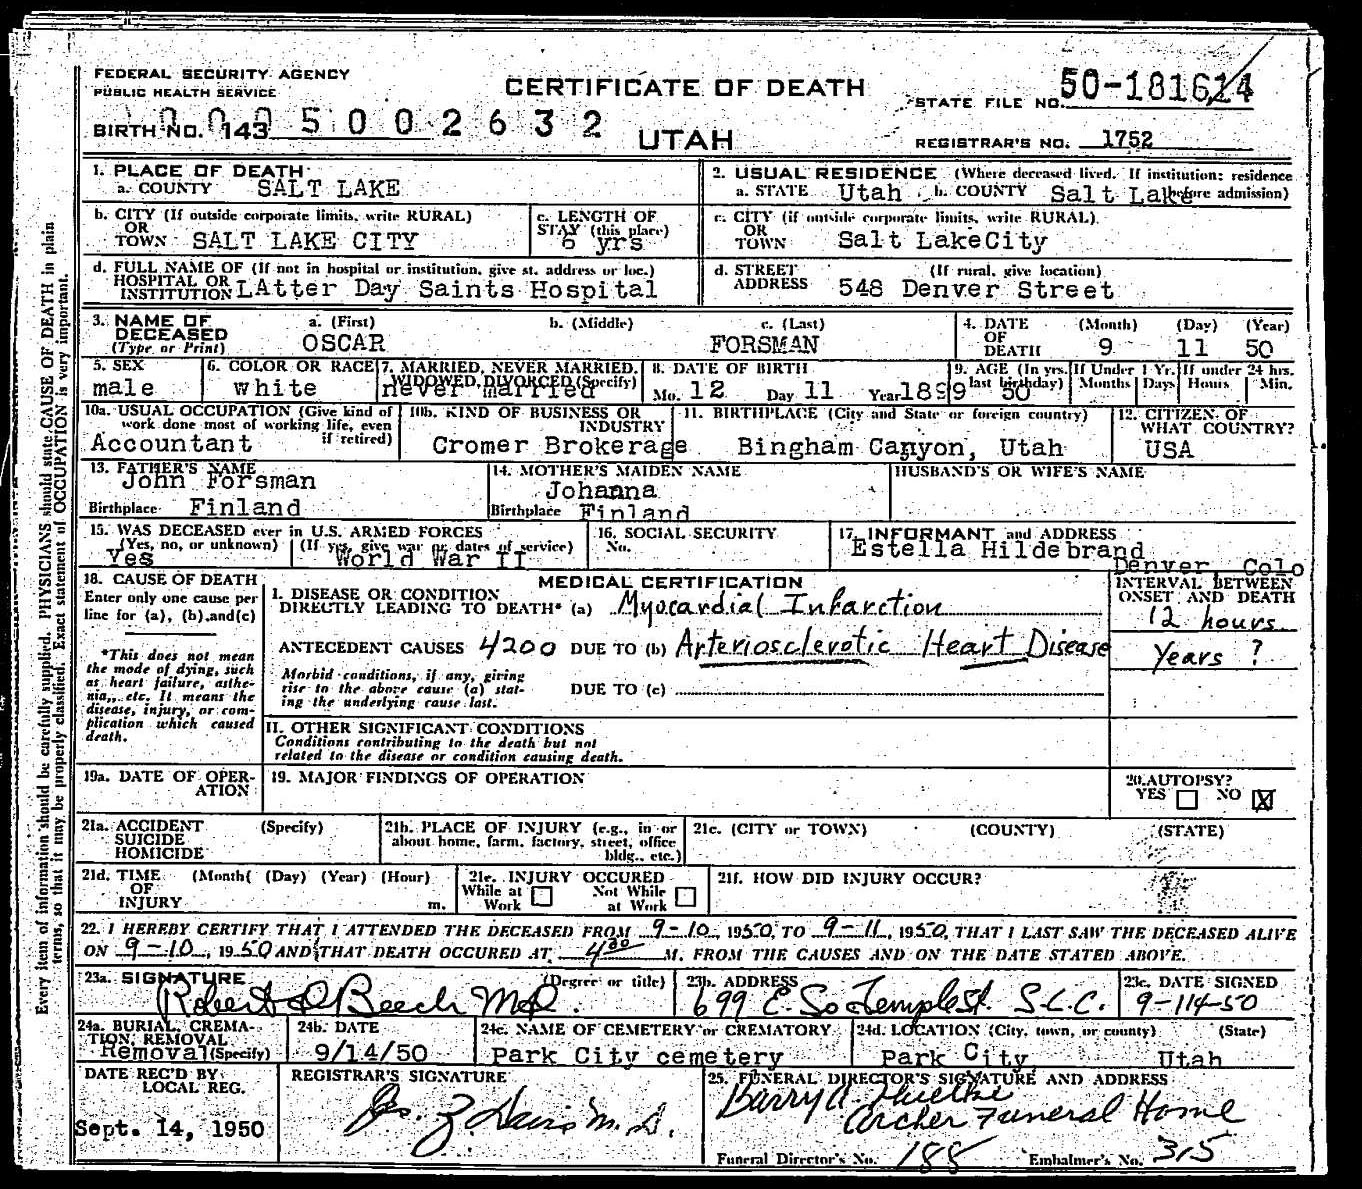 FEDERAL SECURITY AGENCY
PUBLIC HEALTH SERVICE
CERTIFICATE OF DEATH
STATE FILE NO. 50-181614
BIRTH NO. 143 0005002632
UTAH
REGISTRAR'S NO. 1752
1. PLACE OF DEATH
a. COUNTY SALT LAKE
2. USUAL RESIDENCE (Where deceased lived. If institution: residence before admission)
a. STATE Utah b. COUNTY Salt Lake
b. CITY (If outside corporate limits, write RURAL)
OR
TOWN SALT LAKE CITY
c. LENGTH OF
STAY (this place)
6 yrs
c. CITY (if outside corporate limits, write RURAL)
OR
TOWN Salt LakeCity
d. FULL NAME OF (If not in hospital or institution, give st. address or loc.)
HOSPITAL OR
INSTITUTION LAtter Day Saints Hospital
d. STREET (If rural, give location)
ADDRESS 548 Denver Street
3. NAME OF DECEASED
(Type or Print)
a. (First) b. (Middle) c. (Last)
OSCAR FORSMAN
4. DATE OF DEATH
(Month) (Day) (Year)
9 11 50
5. SEX
male
6. COLOR OR RACE
white
7. MARRIED, NEVER MARRIED,
WIDOWED, DIVORCED (Specify)
never married
8. DATE OF BIRTH
Mo. 12 Day 11 Year 1899
9. AGE (In yrs. last birthday)
50
If Under 1 Yr.
Months Days
If under 24 hrs.
Hours Min.
10a. USUAL OCCUPATION (Give kind of
work done most of working life, even
if retired)
Accountant
10b. KIND OF BUSINESS OR
INDUSTRY
Cromer Brokerage
11. BIRTHPLACE (City and State or foreign country)
Bingham Canyon, Utah
12. CITIZEN OF
WHAT COUNTRY?
USA
13. FATHER'S NAME
John Forsman
Birthplace Finland
14. MOTHER'S MAIDEN NAME
Johanna
Birthplace Finland
HUSBAND'S OR WIFE'S NAME
15. WAS DECEASED ever in U.S. ARMED FORCES
(Yes, no, or unknown) (If yes, give war or dates of service)
Yes World War II
16. SOCIAL SECURITY
No.
17. INFORMANT and ADDRESS
Estella Hildebrand
Denver, Colo
18. CAUSE OF DEATH
Enter only one cause per
line for (a), (b), and (c)
*This does not mean
the mode of dying, such
as heart failure, asthe-
nia, etc. It means the
disease, injury, or com-
plication which caused
death.
MEDICAL CERTIFICATION
INTERVAL BETWEEN
ONSET AND DEATH
I. DISEASE OR CONDITION
DIRECTLY LEADING TO DEATH* (a) Myocardial Infarction
12 hours
ANTECEDENT CAUSES 4200 DUE TO (b) Arteriosclerotic Heart Disease
Years ?
Morbid conditions, if any, giving
rise to the above cause (a) stat-
ing the underlying cause last.
DUE TO (c)
II. OTHER SIGNIFICANT CONDITIONS
Conditions contributing to the death but not
related to the disease or condition causing death.
19a. DATE OF OPER-
ATION
19. MAJOR FINDINGS OF OPERATION
20. AUTOPSY?
YES NO X
21a. ACCIDENT (Specify)
SUICIDE
HOMICIDE
21b. PLACE OF INJURY (e.g., in or
about home, farm, factory, street, office
bldg., etc.)
21c. (CITY or TOWN) (COUNTY) (STATE)
21d. TIME (Month( (Day) (Year) (Hour)
OF
INJURY m.
21e. INJURY OCCURED
While at Work Not While at Work
21f. HOW DID INJURY OCCUR?
22. I HEREBY CERTIFY THAT I ATTENDED THE DECEASED FROM 9-10, 1950, TO 9-11, 1950, THAT I LAST SAW THE DECEASED ALIVE
ON 9-10, 1950 AND THAT DEATH OCCURED AT 4 30 M. FROM THE CAUSES AND ON THE DATE STATED ABOVE.
23a. SIGNATURE (Degree or title)
Robert D Beech MD.
23b. ADDRESS
699 E. So Temple St. S.L.C.
23c. DATE SIGNED
9-114-50
24a. BURIAL, CREMA-
TION, REMOVAL
Removal (Specify)
24b. DATE
9/14/50
24c. NAME OF CEMETERY or CREMATORY
Park City cemetery
24d. LOCATION (City, town, or county) (State)
Park City, Utah
DATE REC'D BY
LOCAL REG.
Sept. 14, 1950
REGISTRAR'S SIGNATURE
M.D.
25. FUNERAL DIRECTOR'S SIGNATURE AND ADDRESS
Barry A.
Archer Funeral Home
Funeral Director's No. 188 Embalmer's No. 315
Every item of information should be carefully supplied. PHYSICIANS should state CAUSE OF DEATH in plain
terms, so that it may be properly classified. Exact statement of OCCUPATION is very important.